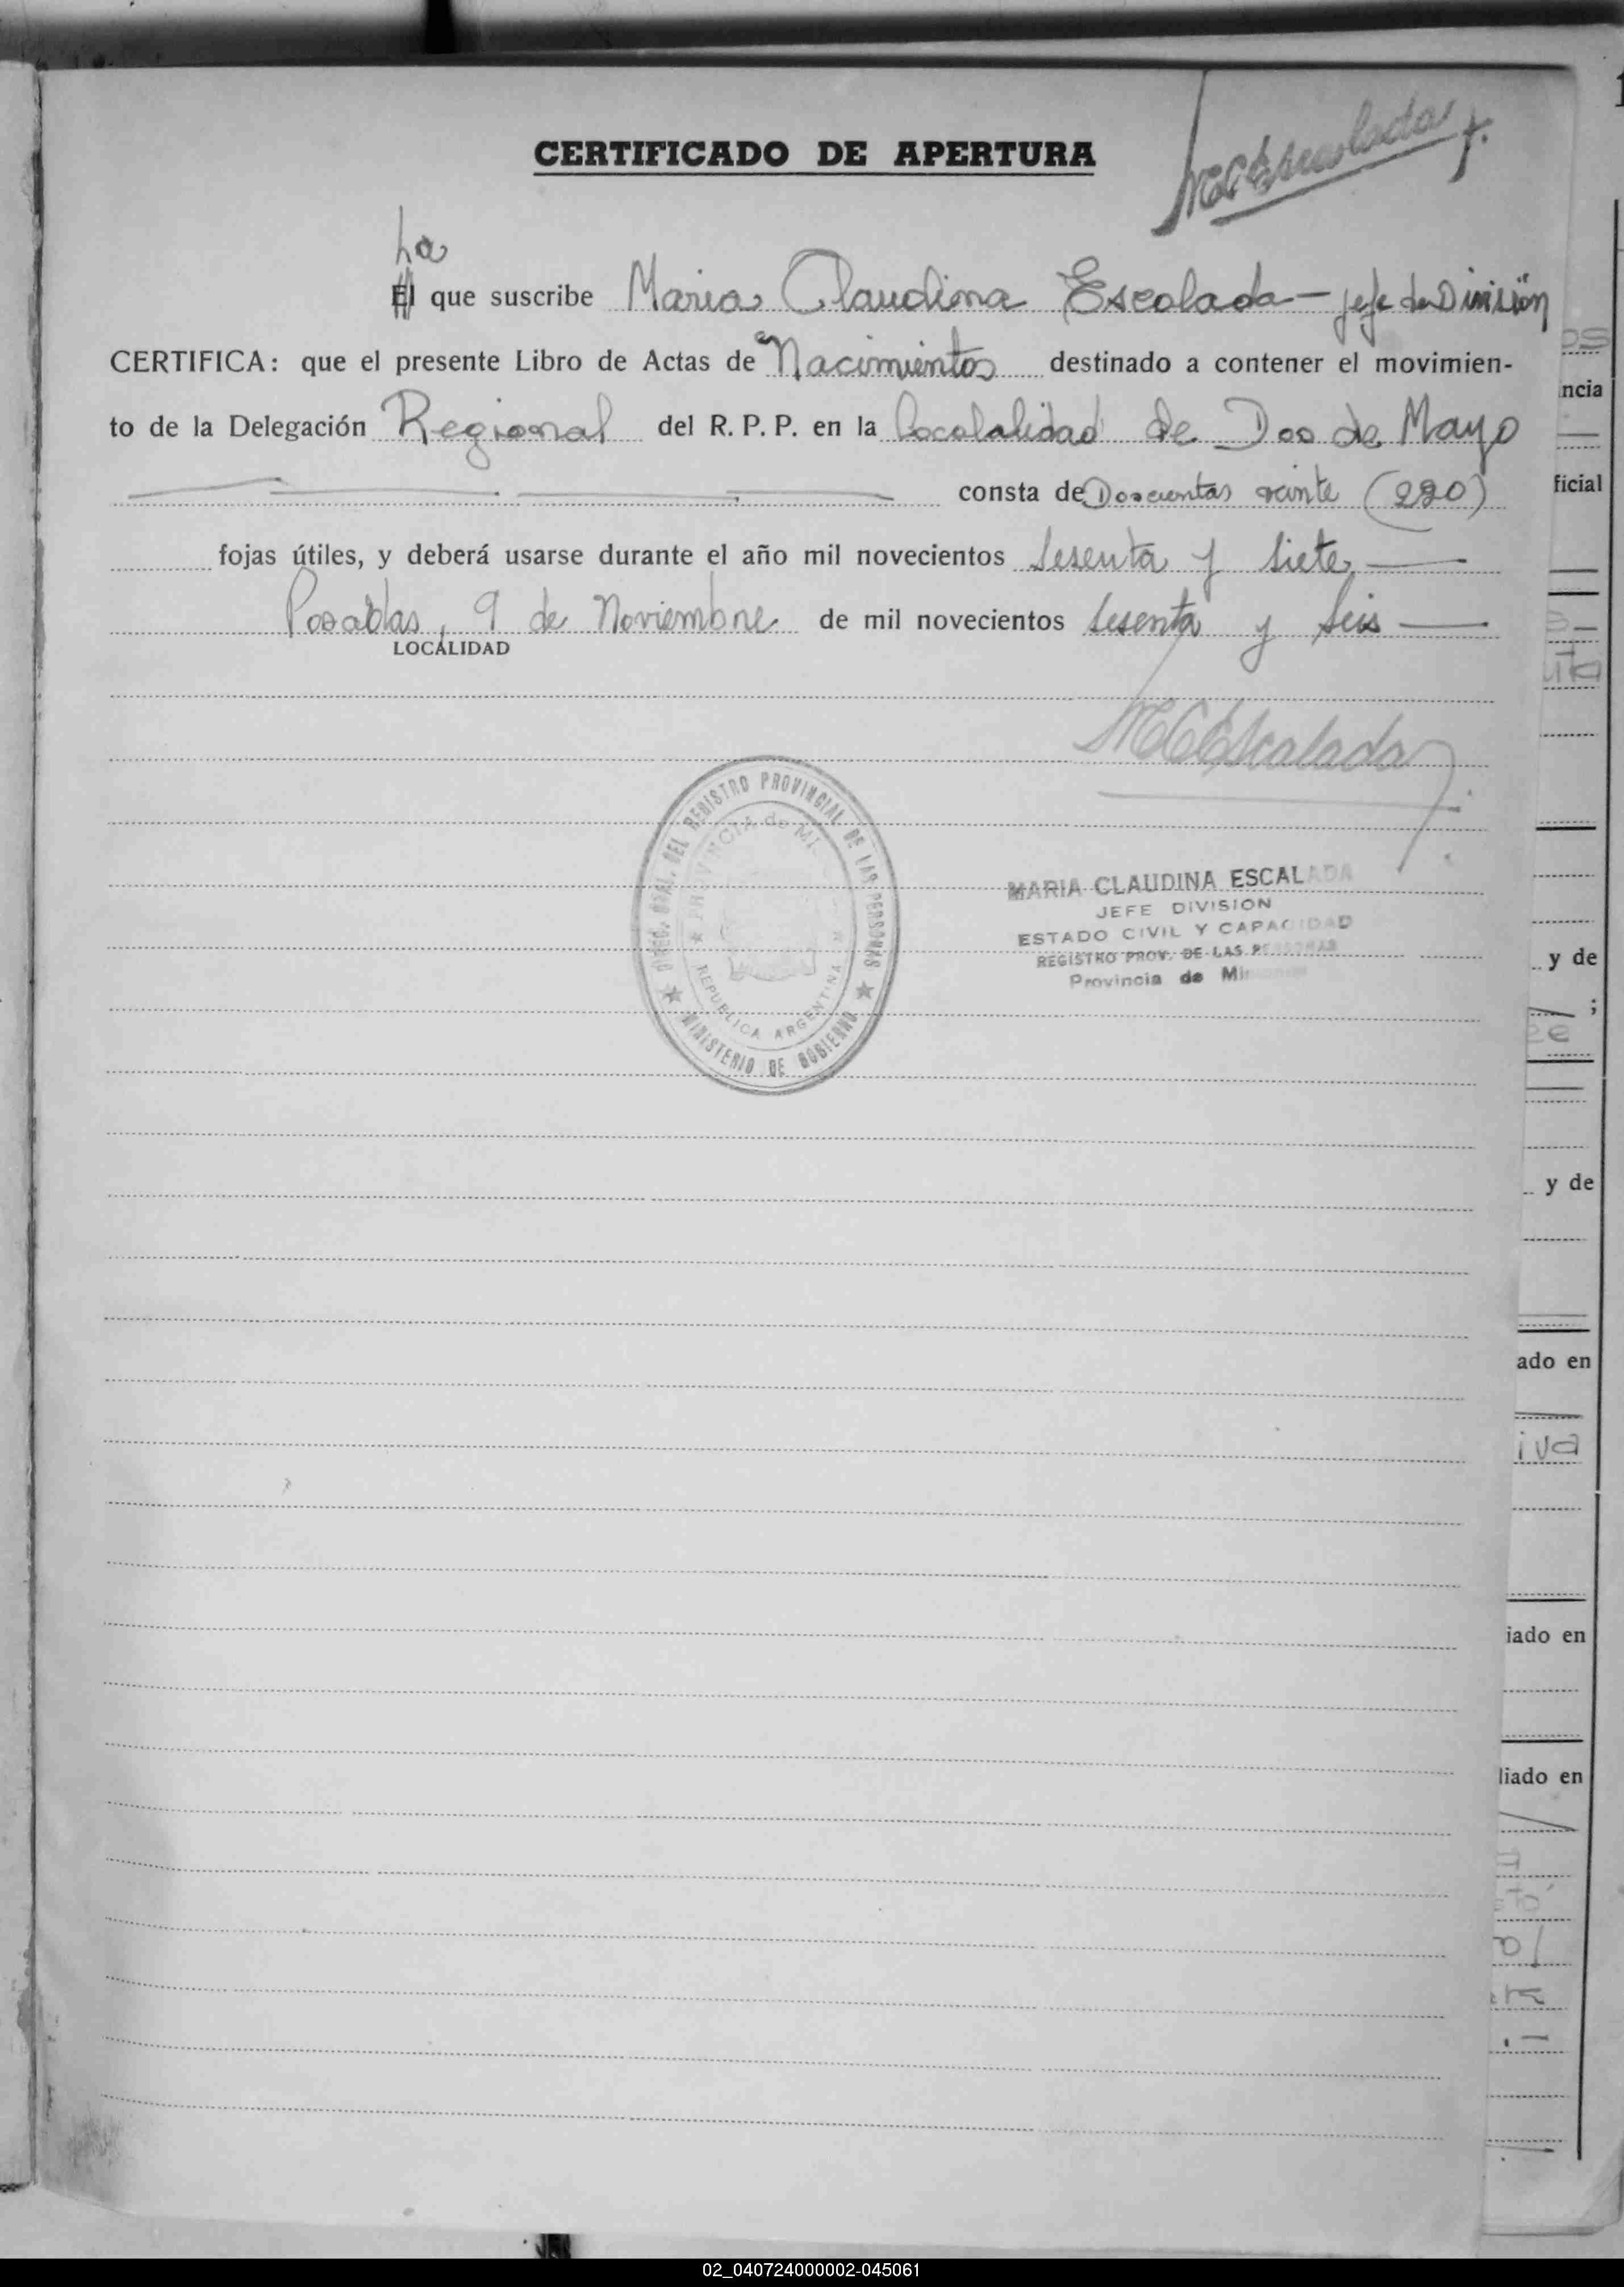 CERTIFICADO DE APERTURA
MCEscalada
La
El que suscribe Maria Claudina Escalada — jefe de División
CERTIFICA: que el presente Libro de Actas de Nacimientos destinado a contener el movimien-
to de la Delegación Regional del R. P. P. en la Localidad de Dos de Mayo
consta de Doscientas veinte (220)
fojas útiles, y deberá usarse durante el año mil novecientos sesenta y siete —
Posadas, 9 de Noviembre de mil novecientos sesenta y seis —
LOCALIDAD
MCEscalada
DIREC. GRAL. DEL REGISTRO PROVINCIAL DE LAS PERSONAS
PROVINCIA de MI
REPUBLICA ARGENTINA
MINISTERIO DE GOBIERNO
MARIA CLAUDINA ESCALADA
JEFE DIVISION
ESTADO CIVIL Y CAPACIDAD
REGISTRO PROV. DE LAS PERSONAS
Provincia de Mi
ncia
ficial
y de
;
y de
ado en
iva
iado en
liado en
02_040724000002-045061